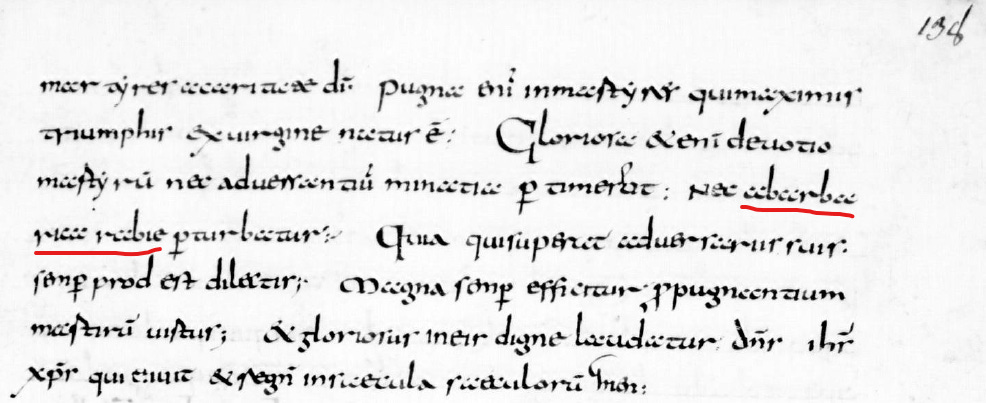 138
martyres acaritate dī· Pugna enī inmartyres quimaximis
triumphis ex uirgine natus ē; Gloriosa & enī devotio
martyrū nec adversantiū minatia ꝑ timescit; Nec abarba
rica rabie ꝑturbatur; Quia quisuperat adversarius suis·
semꝑ prod est dilectis; Magna semꝑ efficitur ꝓpugnantium
martirū uictus; & gloriosus ineis digne laudatur· dn̄s ihs̄
xp̄s qui uiuit & regn̄ insaecula saeculorū